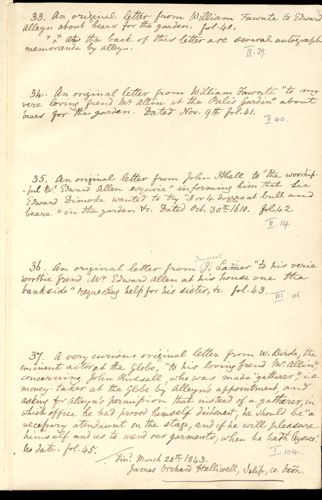 33. An original letter from William Fawnte to Edward
Alleyn about bears for the garden. fol. 40.
+ At the back of this letter are several autograph
memoranda by Alleyn.
II. 39.
34. An original letter from William Fawnte "to my
vere loving frend Mr Allin at the Palis garden" about
bears for the garden. Dated Nov. 9th fol. 41.
II 40
35. An original letter from John Ithell to "the worship-
-ful Mr. Edward Allen esquire" informing him that Sir
Edward Dimoke wanted to try "3 or 4 dogges at bull and
beare" in the garden &c. Dated Oct 30th 1610. fol. 42.
II. 14
36. An original letter from J. Lamer "to his verie
worthie frend Mr Edward Allen at his house one the
bankside" requesting help for his sister, &c. fol. 43.
III 116
37. A very curious original letter from W. Birde, the
eminent actor at the Globe, "to his loving frend Mr Allin,"
concerning John Russell, who was made "gatherer," i.e.
money-taker at the Globe by Alleyn's appointment, and
asking for Alleyn's permission that instead of a gatherer, in
which office he had proved himself dishonest, he should be "a
necessary attendaunt on the stage, and if he will pleasure
himself and us to mend our garments, when he hath leysure"
No date. fol. 45.
I. 104.
Fin: March 28th 1843.
James Orchard Halliwell, Islip, co. Oxon.